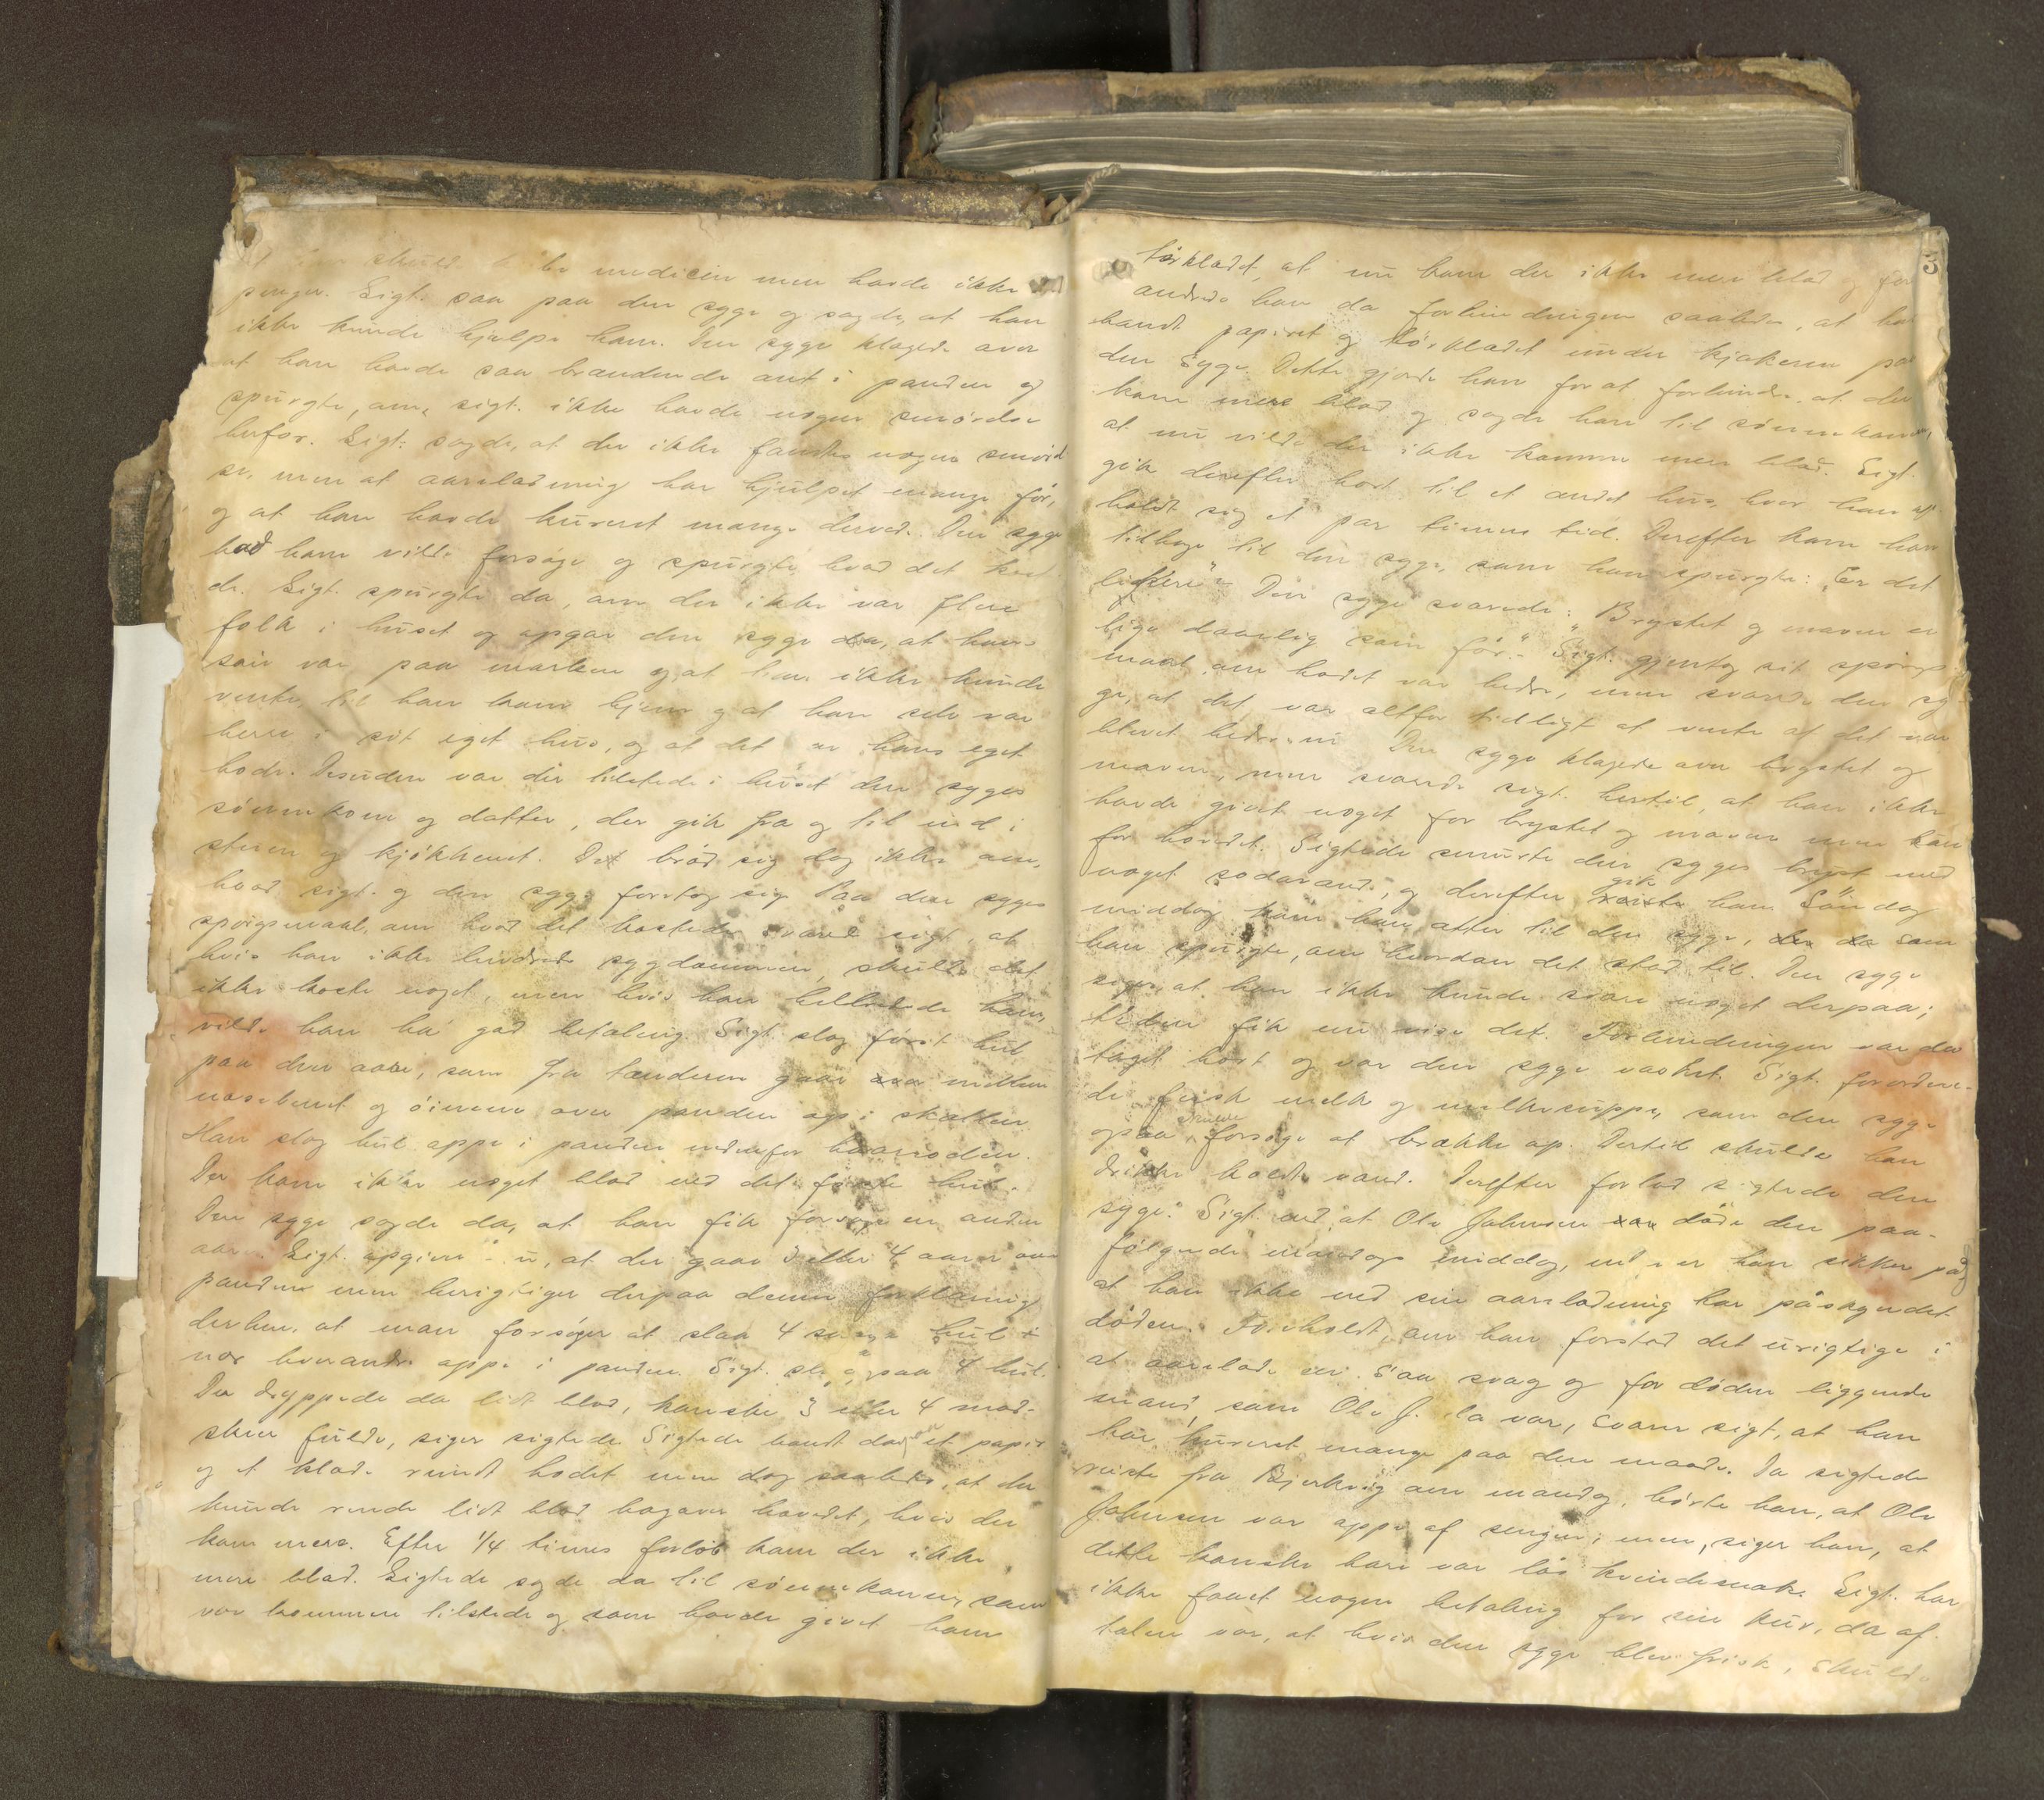 skuld medicin men havde ikke
penger. Sigt. saa paa den syge og sagde, at han
ikke kunde hjælpe ham. Den syge klagede over
at han havde saa brændende ont i panden og
spurgte, om sigt. ikke havde nogen smörelse
herfor. Sigt. sagde, at der ikke fandtes nogen smörel
se, men at aareladning har hjulpet mange för,
og at han havde kureret mange derved. Den syge
bad ham vilde forsöge og spurgte hvad det kost
de. Sigt. spurgte da, om der ikke var flere
folk i huset og opgav den syge da, at hans
sön var paa marken og at han ikke kunde
vente, til han kom hjem og at han selv var
herre i sit eget hus, og at det er hans eget
hode. Desuden var der tilstede i huset den syges
sönnekone og datter, der gik fra og til ind i
stuen og kjökkenet. De bröd sig dog ikke om,
hvad sigt. og den syge foretog sig. Paa den syges
spörgsmaal, om hvad det kostede svared sigt, at
hvis han ikke lindrede sygdommen, skulde det
ikke koste noget, men hvis han helbredede ham,
vilde han ha god betaling. Sigt. slog först hul
paa den aare, som fra tænderne gaar mellem
nesebenet og öinene over panden op i skallen.
Han slog hul oppe i panden nedenfor haarroden.
Der kom ikke noget blod ved det förste hul.
Den syge sagde da, at han fik forsöge en anden
aare. Sigt. opgiver nu, at der gaar 3 eller 4 aarer over
panden men berigtiger derpaa denne forklaring
derhen, at man forsöger at slaa 4 hul i
nær hverandre oppe i panden. Sigt. slog ogsaa 4 hul.
Der dryppede da lidt blod, kanske 3 eller 4 mad-
skeer fulde, siger sigtede. Sigtede bandt da et papir
og et klæde rundt hodet men dog saaledes, at der
kunde rende lidt blod bagover hovedet, hvis der
kom mere. Efter 1/4 times forlöb kom der ikke
mere blod. Sigtede sagde da til sönnekonen, som
var kommen tilstede og som havde givet ham
3
törklædet, at nu kom der ikke mere blod og for
andrede han da forbindingen saaledes, at han
bandt papiret og törklædet under kjakerne paa
den syge. Dette gjorde han for at forhindre, at der
kom mere blod og sagde han til sönnekonen,
at nu vilde der ikke komme mere blod. Sigt.
gik derefter bort til et andet hus, hvor han op
holdt sig et par timers tid. Derefter kom han
tilbage til den syge, som han spurgte: „Er det
likere" Den syge svarede: „Brystet og maven er
lige daarlig som för." Sigt. gjentog sit spörgs
maal om hodet var bedre, men svarede den sy
ge, at det var altfor tidligt at vente at det var
blevet bedre nu. Den syge klagede over brystet og
maven, men svarede sigt. hertil, at han ikke
havde givet noget for brystet og maven men kun
for hovedet. Sigtede smurte den syges bryst med
noget sodavand, og derefter gik han. Söndag
middag kom han atter til den syge, som
han spurgte, om hvordan det stod til. Den syge
siger, at han ikke kunde svare noget derpaa;
tiden fik nu vise det. Forbindingen var da
taget bort og var den syge vasket. Sigt. forordne-
de fersk melk og melkesuppe, som den syge
ogsaa skulde forsöge at brække op. Dertil skulde han
drikke koldt vand. Derefter forlod sigtede den
syge. Sigt. ved, at Ole Johnsen döde den paa-
fölgende mandags middag, men er han sikker paa
at han ikke ved sin aareladning har påskyndet
döden. Foreholdt, om han forstod det urigtige i
at aarelade en saa svag og for döden liggende
mand, som Ole J. da var, svarer sigt, at han
har kureret mange paa den maade. Da sigtede
reiste fra Bjerkvig om mandag, hörte han, at Ole
Johnsen var oppe af sengen; men, siger han, at
dette kanske bare var lös kvindesnak. Sigt. har
ikke faaet nogen betaling for sin kur, da af
talen var, at hvis den syge blev frisk, skulde